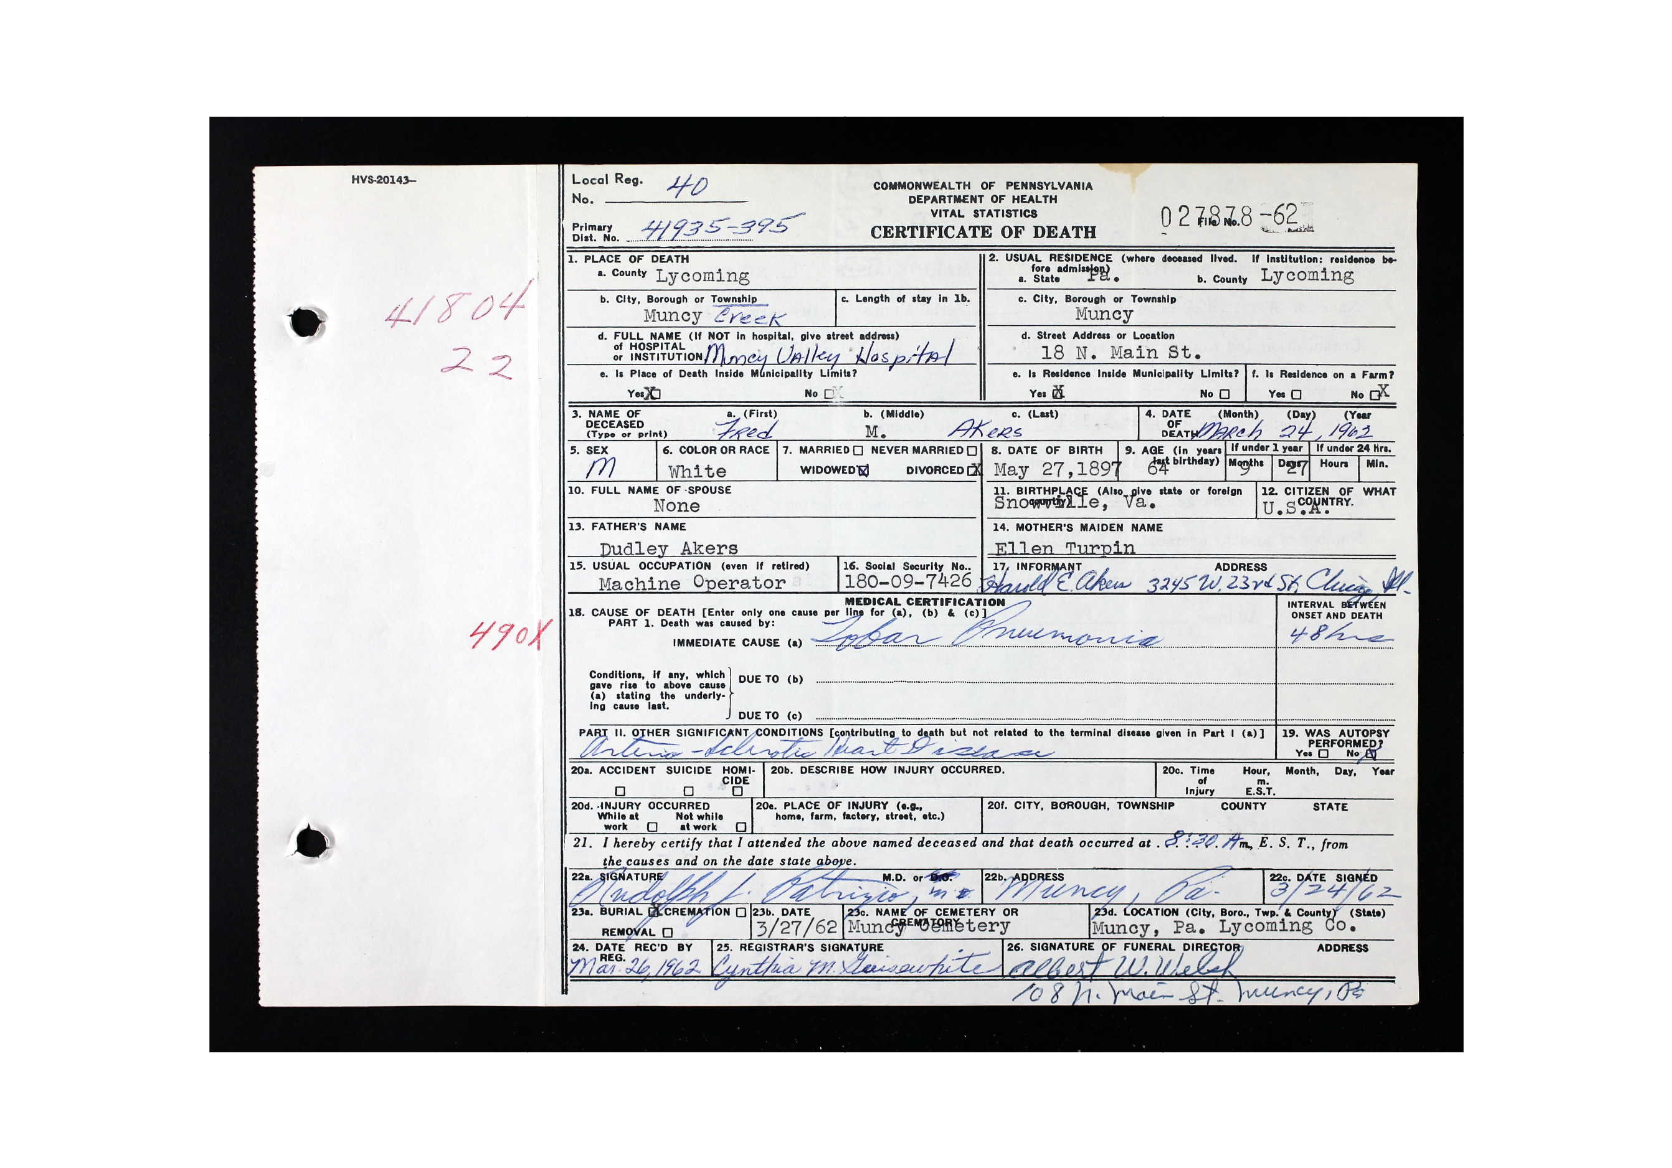 HVS-20143—
Local Reg. No. 40
COMMONWEALTH OF PENNSYLVANIA
DEPARTMENT OF HEALTH
VITAL STATISTICS
CERTIFICATE OF DEATH
File No. 027878-62
Primary Dist. No. 41935-395
41804
22
1. PLACE OF DEATH
a. County Lycoming
b. City, Borough or Township
Muncy Creek
c. Length of stay in 1b.
d. FULL NAME (If NOT in hospital, give street address)
of HOSPITAL
or INSTITUTION Muncy Valley Hospital
e. Is Place of Death Inside Municipality Limits?
Yes X No
2. USUAL RESIDENCE (where deceased lived. If Institution: residence before admission)
a. State Pa. b. County Lycoming
c. City, Borough or Township
Muncy
d. Street Address or Location
18 N. Main St.
e. Is Residence Inside Municipality Limits?
Yes X No
f. Is Residence on a Farm?
Yes No X
3. NAME OF DECEASED (Type or print)
a. (First) b. (Middle) c. (Last)
Fred M. Akers
4. DATE OF DEATH (Month) (Day) (Year
March 24, 1962
5. SEX
M
6. COLOR OR RACE
White
7. MARRIED NEVER MARRIED
WIDOWED X DIVORCED X
8. DATE OF BIRTH
May 27,1897
9. AGE (in years last birthday)
64
If under 1 year
Months 9 Days 27
If under 24 hrs.
Hours Min.
10. FULL NAME OF SPOUSE
None
11. BIRTHPLACE (Also give state or foreign country)
Snowville, Va.
12. CITIZEN OF WHAT COUNTRY.
U.S.A.
13. FATHER'S NAME
Dudley Akers
14. MOTHER'S MAIDEN NAME
Ellen Turpin
15. USUAL OCCUPATION (even if retired)
Machine Operator
16. Social Security No..
180-09-7426
17. INFORMANT ADDRESS
Harold E. Akers 3245 W. 23rd St, Chicago, Ill.
MEDICAL CERTIFICATION
18. CAUSE OF DEATH [Enter only one cause per line for (a), (b) & (c)]
PART 1. Death was caused by:
IMMEDIATE CAUSE (a) Lobar Pneumonia
INTERVAL BETWEEN ONSET AND DEATH
48 hrs
490X
Conditions, if any, which
gave rise to above cause
(a) stating the underly-
ing cause last.
DUE TO (b)
DUE TO (c)
PART II. OTHER SIGNIFICANT CONDITIONS [contributing to death but not related to the terminal disease given in Part I (a)]
Arterio-Sclerotic Heart Disease
19. WAS AUTOPSY PERFORMED?
Yes No X
20a. ACCIDENT SUICIDE HOMI-
CIDE
20b. DESCRIBE HOW INJURY OCCURRED.
20c. Time of Injury Hour, Month, Day, Year
m.
E.S.T.
20d. INJURY OCCURRED
While at work Not while at work
20e. PLACE OF INJURY (e.g., home, farm, factory, street, etc.)
20f. CITY, BOROUGH, TOWNSHIP COUNTY STATE
21. I hereby certify that I attended the above named deceased and that death occurred at 8:30 A m, E. S. T., from
the causes and on the date state above.
22a. SIGNATURE M.D. or D.O.
Rudolph J. Patrizio, M.D.
22b. ADDRESS
Muncy, Pa.
22c. DATE SIGNED
3/24/62
23a. BURIAL X CREMATION
REMOVAL
23b. DATE
3/27/62
23c. NAME OF CEMETERY OR CREMATORY
Muncy Cemetery
23d. LOCATION (City, Boro., Twp. & County) (State)
Muncy, Pa. Lycoming Co.
24. DATE REC'D BY REG.
Mar. 26, 1962
25. REGISTRAR'S SIGNATURE
Cynthia M.
26. SIGNATURE OF FUNERAL DIRECTOR ADDRESS
Albert W. Welsh
108 N. Main St. Muncy, Pa